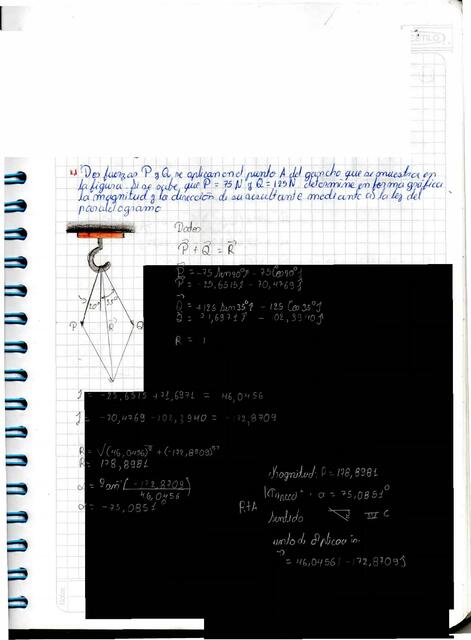 Dos fuerzas P y Q se aplican en el punto A del gancho que se muestra en
la figura. Si se sabe que P = 75 N y Q = 125 N determine en forma gráfica
la magnitud y la dirección de su resultante mediante a) la ley del
paralelogramo
Datos
P + Q = R
P = -75 sen 20° i - 75 Cos 20° j
P = -25,6515 i - 70,4769 j
Q = +125 sen 35° i - 125 Cos 35° j
Q = 71,6971 i - 102,3940 j
R =
20° 35°
P R Q
i = -25,6515 + 71,6971 = 46,0456
j = -70,4769 - 102,3940 = -172,8709
R = √(46,0456)² + (-172,8709)²
R = 178,8981
α = Tan⁻¹ (-172,8709 / 46,0456)
α = -75,0851°
R+A
Magnitud: R = 178,8981
α = 75,0851°
Sentido IV C
Punto de Aplicación
= 46,0456 i - 172,8709 j